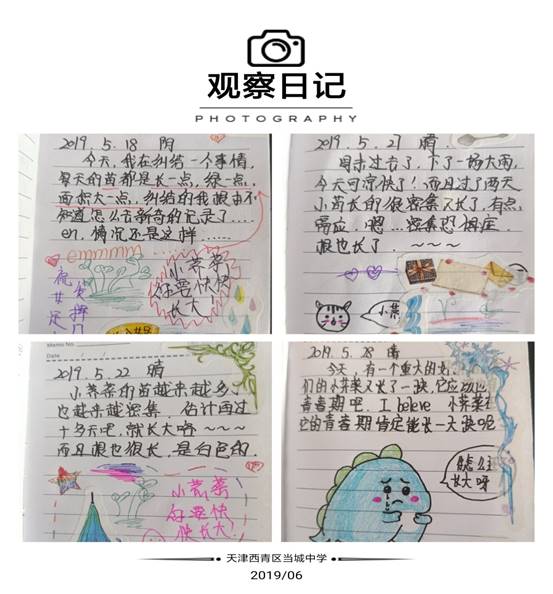 观察日记
PHOTOGRAPHY
2019.5.18 阴
今天,我在纠结一个事情,
每天的苗都是长一点,绿一点,
面积大一点,纠结的我根本不
知道怎么去新奇的记录了....
en,情况还是这样......
小荠菜
你要快快
长大!
2019.5.21 晴
周末过去了,下了一场大雨,
今天可凉快了!而且过了两天
小苗长的很密集又长了,有点
嗯...密集恐惧症,
根也长了.~~~
小荠
Memo No.
Date
2019.5.22 晴
小荠菜的苗越来越多,
也越来越密集,估计再过
十多天吧,就长大咯~~~
而且根也很长,是白色的.
小荠菜
你要快
快长大!
2019.5.28 晴
今天,有一个重大的
们的小荠菜又长了一块,它应
青春期吧,I beleve 小荠菜
它的青春期肯定能长一大块呢
怎么
长大呀
天津西青区当城中学
2019/06